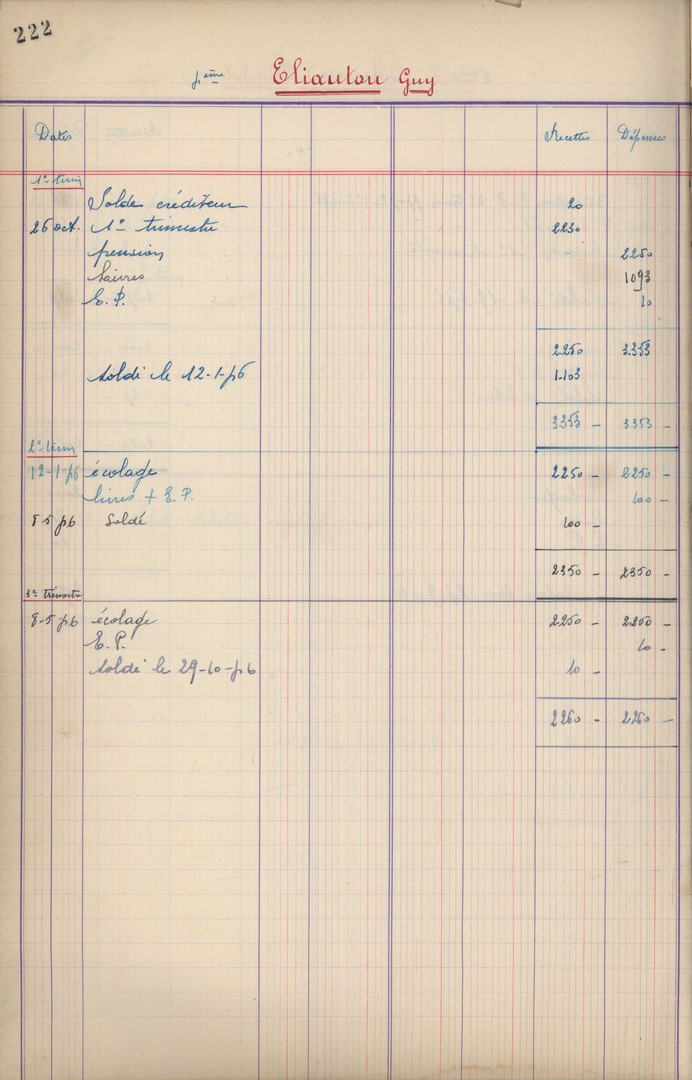 222
5ème Eliauton Guy
Dates Recettes Dépenses
1er trim
Solde créditeur 20
26 oct. 1er trimestre 2230
pension 2250
Livres 1093
E. P. 10
2250 3.353
soldé le 12-1-56 1.103
3353 - 3353 -
2e trim
12-1-56 écolage 2250 - 2250 -
livres + E. P. 100 -
8-5-56 Soldé 100 -
2350 - 2350 -
3e trimestre
8-5-56 écolage 2250 - 2250 -
E. P. 10 -
soldé le 29-10-56 10 -
2260 - 2260 -